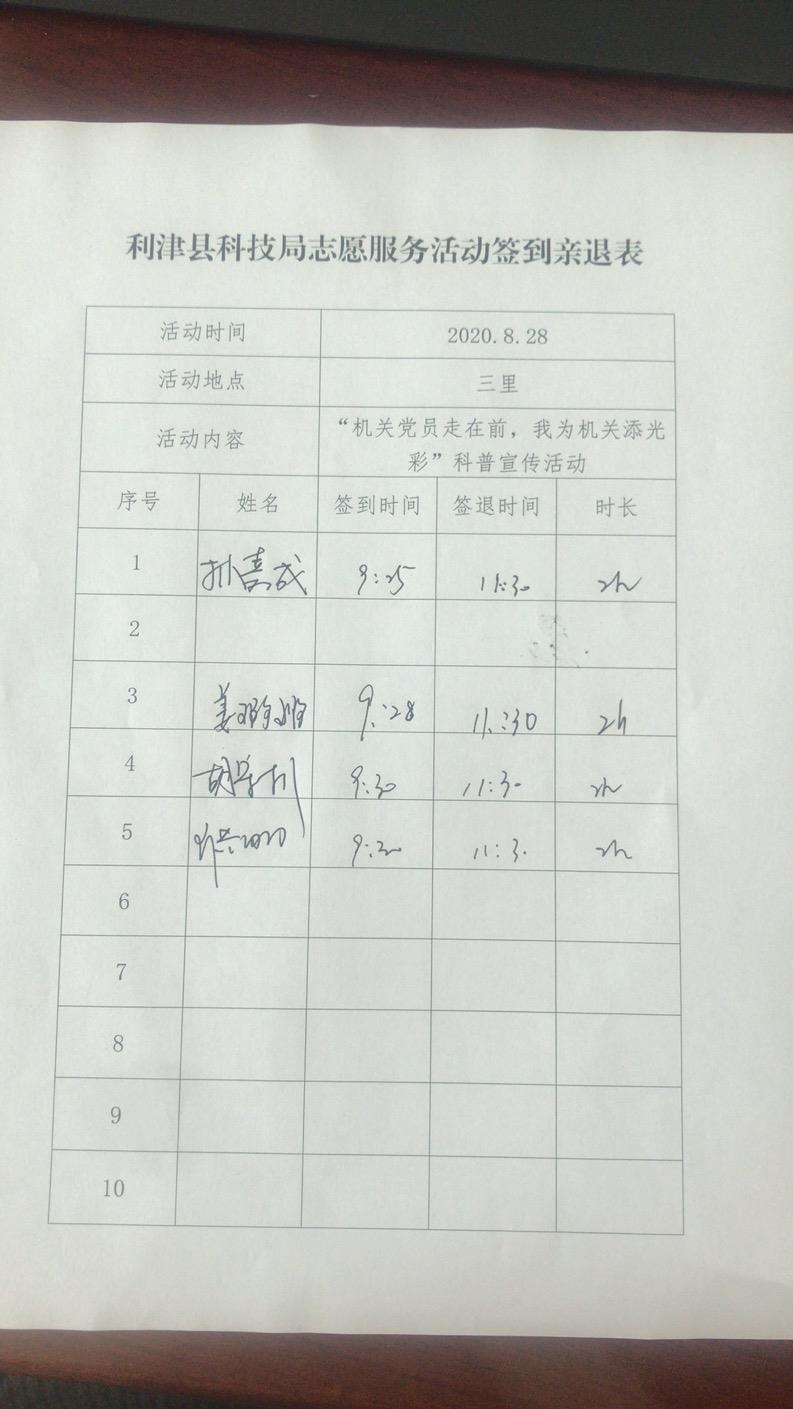 利津县科技局志愿服务活动签到亲退表
活动时间 2020.8.28
活动地点 三里
活动内容 “机关党员走在前，我为机关添光
彩”科普宣传活动
序号 姓名 签到时间 签退时间 时长
1 9:25 11:30 2h
2
3 9:28 11:30 2h
4 9:30 11:30 2h
5 9:30 11:30 2h
6
7
8
9
10